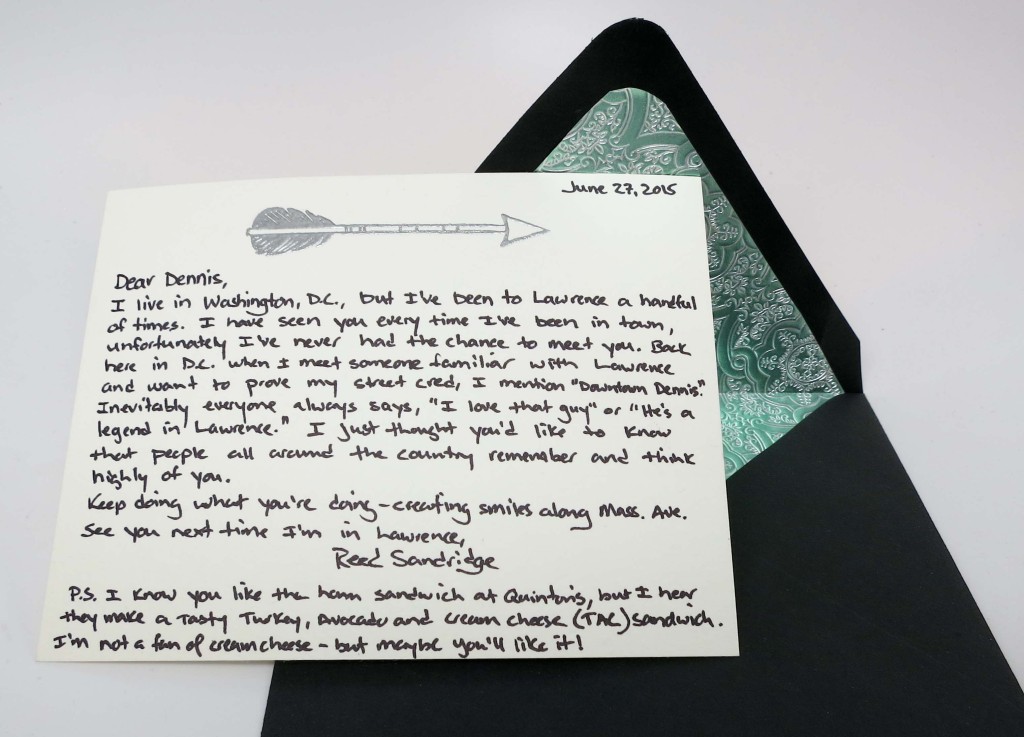 June 27, 2015
Dear Dennis,
I live in Washington, D.C., but I've been to Lawrence a handful
of times. I have seen you every time I've been in town,
unfortunately I've never had the chance to meet you. Back
here in D.C. when I meet someone familiar with Lawrence
and want to prove my street cred, I mention "Downtown Dennis."
Inevitably everyone always says, "I love that guy" or "He's a
legend in Lawrence." I just thought you'd like to know
that people all around the country remember and think
highly of you.
Keep doing what you're doing-creating smiles along Mass. Ave.
See you next time I'm in Lawrence,
Reed Sandridge
P.S. I know you like the ham sandwich at Quintons, but I hear
they make a Tasty Turkey, Avocado and cream cheese (TAC) sandwich.
I'm not a fan of cream cheese - but maybe you'll like it!